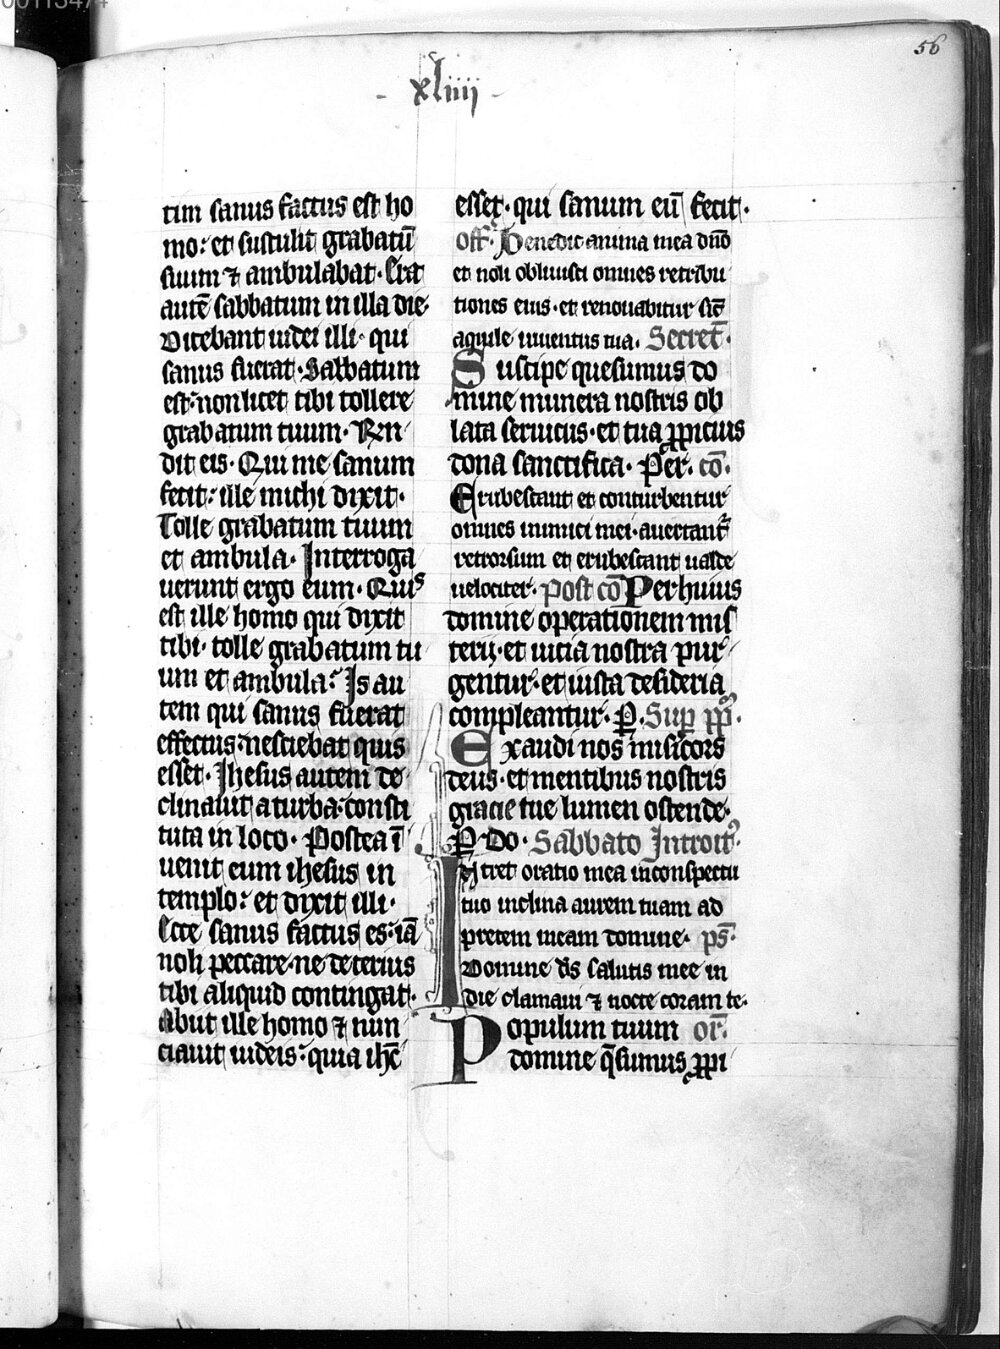 00113474
56
- xliiij -
tim sanus factus est ho
mo: et sustulit grabatū
suum ⁊ ambulabat. Erat
autē sabbatum in illa die.
Dicebant iudei illi. qui
sanus fuerat. Sabbatum
est: non licet tibi tollere
grabatum tuum. Rn̄
dit eis. Qui me sanum
fecit: ille michi dixit.
Tolle grabatum tuum
et ambula. Interroga
uerunt ergo eum. Quis
est ille homo qui dixit
tibi. tolle grabatum tu
um et ambula? Is au
tem qui sanus fuerat
effectus: nesciebat quis
esset. Jhesus autem de
clinauit a turba: consti
tuta in loco. Postea ī
uenit eum ihesus in
templo: et dixit illi.
Ecce sanus factus es: iā
noli peccare. ne deterius
tibi aliquid contingat.
Abiit ille homo ⁊ nun
ciauit iudeis: quia ihē
esset. qui sanum eū fecit.
Off. Benedic anima mea dn̄o
et noli obliuisci omnes retribu
tiones eius. et renouabitur sic̄
aquile iuuentus tua. Secret̄.
Suscipe quesumus do
mine munera nostris ob
lata seruicijs. et tua ꝓpicius
dona sanctifica. Per. cō.
Erubescant et conturbentur
omnes inimici mei. auertant᷑
retrorsum et erubescant ualde
uelociter. post cō Per huius
domine operationem mis
terij. et uicia nostra pur
gentur. et iusta desideria
compleantur. P. Sup pp̄.
Exaudi nos misicors
deus. et mentibus nostris
gracie tue lumen ostende.
P Do. Sabbato Introit᷒.
Intret oratio mea in conspectu
tuo inclina aurem tuam ad
precem meam domine. ps̄.
Domine ds̄ salutis mee in
die clamaui ⁊ nocte coram te.
Populum tuum or̄.
domine q̄sumus ꝓpi